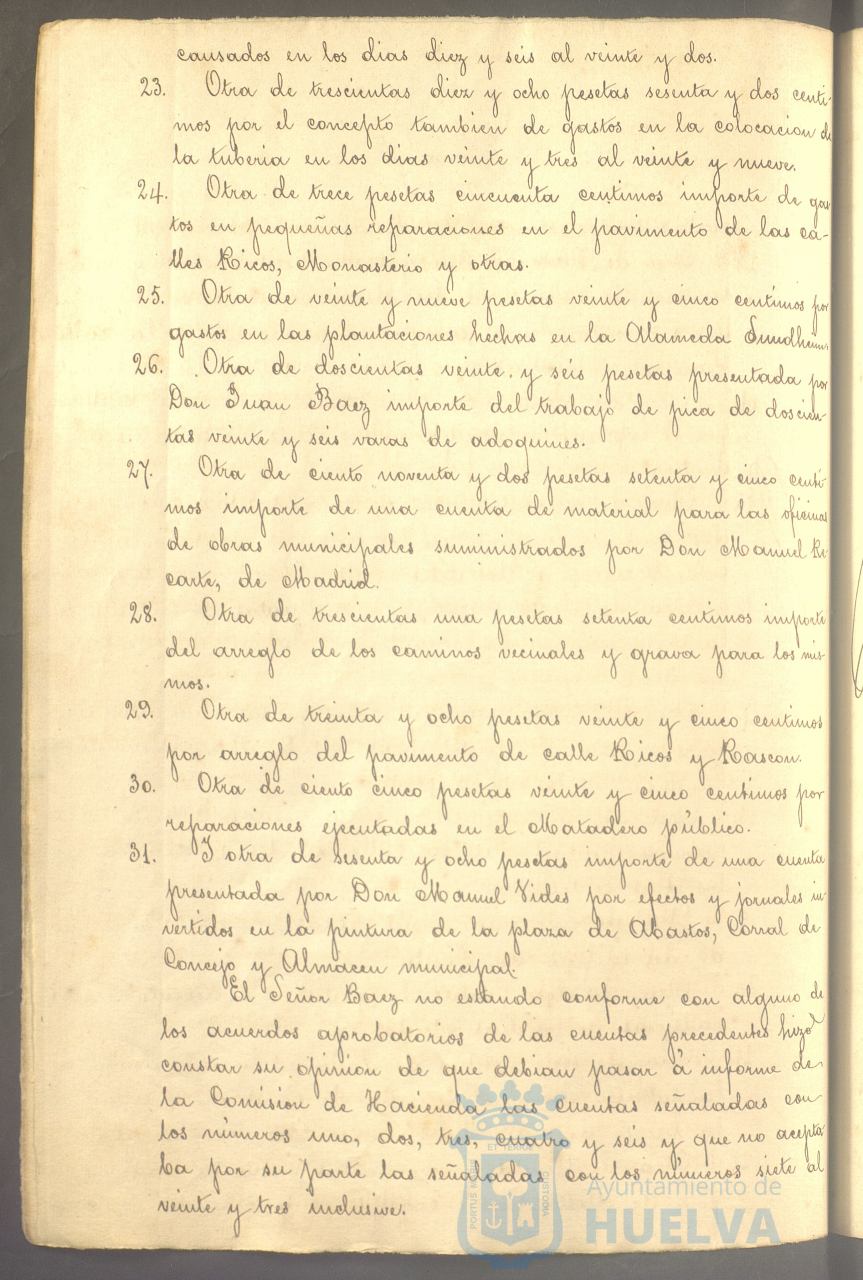 causados en los dias diez y seis al veinte y dos.
23. Otra de trescientas diez y ocho pesetas sesenta y dos centi-
mos por el concepto tambien de gastos en la colocacion de
la tuberia en los dias veinte y tres al veinte y nueve.
24. Otra de trece pesetas cincuenta centimos importe de gas
tos en pequeñas reparaciones en el pavimento de las ca-
lles Ricos, Monasterio y otras.
25. Otra de veinte y nueve pesetas veinte y cinco centimos por
gastos en las plantaciones hechas en la Alameda Sundheim.
26. Otra de doscientas veinte y seis pesetas presentada por
Don Juan Baez importe del trabajo de pica de doscien-
tas veinte y seis varas de adoquines.
27. Otra de ciento noventa y dos pesetas setenta y cinco centi-
mos importe de una cuenta de material para las oficinas
de obras municipales suministrados por Don Manuel Re-
carte, de Madrid.
28. Otra de trescientas una pesetas setenta centimos importe
del arreglo de los caminos vecinales y grava para los mis-
mos.
29. Otra de treinta y ocho pesetas veinte y cinco centimos
por arreglo del pavimento de calle Ricos y Rascon.
30. Otra de ciento cinco pesetas veinte y cinco centimos por
reparaciones ejecutadas en el Matadero público.
31. I otra de sesenta y ocho pesetas importe de una cuenta
presentada por Don Manuel Vides por efectos y jornales in
vertidos en la pintura de la plaza de Abastos, Corral de
Concejo y Almacen municipal.
El Señor Baez no estando conforme con alguno de
los acuerdos aprobatorios de las cuentas precedentes hizo
constar su opinion de que debian pasar á informe de
la Comision de Hacienda las cuentas señaladas con
los números uno, dos, tres, cuatro y seis y que no acepta
ba por su parte las señaladas con los números siete al
veinte y tres inclusive.
Ayuntamiento de
HUELVA